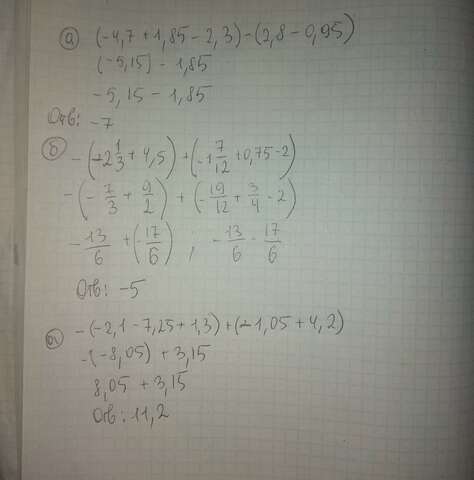 а) (-4,7 + 1,85 - 2,3) - (2,8 - 0,95)
(-5,15) - 1,85
-5,15 - 1,85
Отв: -7
б) -(-2 1/3 + 4,5) + (-1 7/12 + 0,75 - 2)
-(-7/3 + 9/2) + (-19/12 + 3/4 - 2)
-13/6 + (-17/6) ; -13/6 - 17/6
Отв: -5
в) -(-2,1 - 7,25 + 1,3) + (-1,05 + 4,2)
-(-8,05) + 3,15
8,05 + 3,15
Отв: 11,2